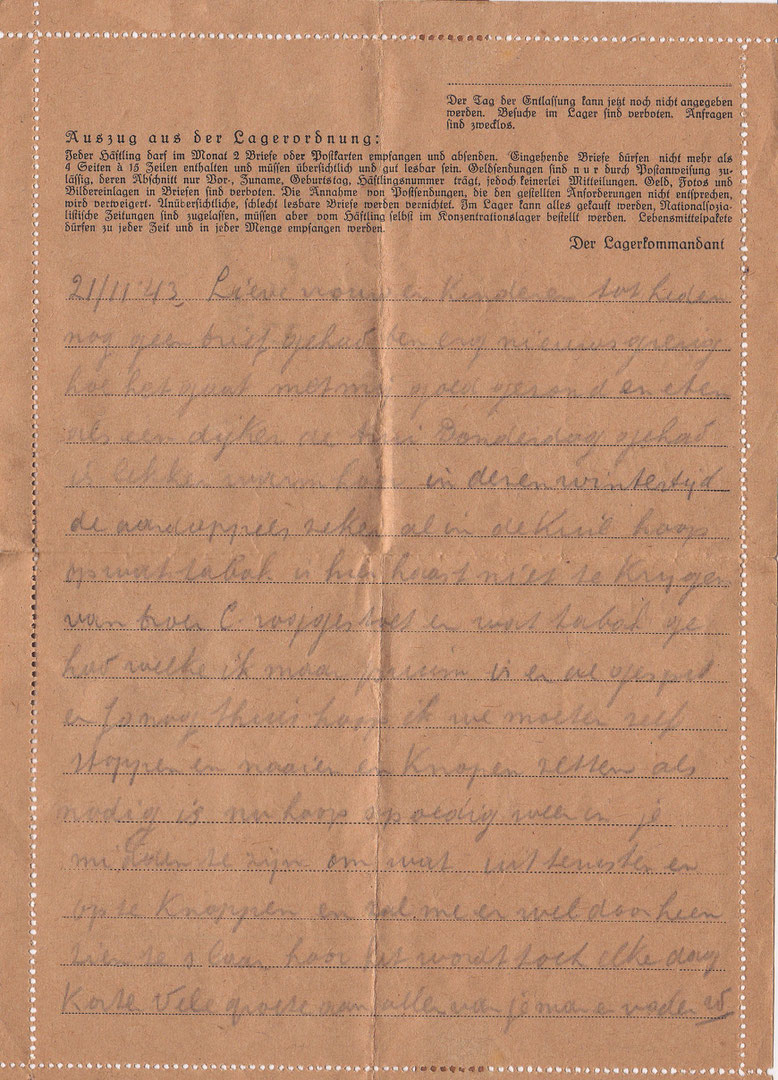 Der Tag der Entlassung kann jetzt noch nicht angegeben
werden. Besuche im Lager sind verboten. Anfragen
sind zwecklos.
Auszug aus der Lagerordnung:
Jeder Häftling darf im Monat 2 Briefe oder Postkarten empfangen und absenden. Eingehende Briefe dürfen nicht mehr als
4 Seiten à 15 Zeilen enthalten und müssen übersichtlich und gut lesbar sein. Geldsendungen sind nur durch Postanweisung zu-
lässig, deren Abschnitt nur Vor-, Zuname, Geburtstag, Häftlingsnummer trägt, jedoch keinerlei Mitteilungen. Geld, Fotos und
Bildereinlagen in Briefen sind verboten. Die Annahme von Postsendungen, die den gestellten Anforderungen nicht entsprechen,
wird verweigert. Unübersichtliche, schlecht lesbare Briefe werden vernichtet. Im Lager kann alles gekauft werden, Nationalsozia-
listische Zeitungen sind zugelassen, müssen aber vom Häftling selbst im Konzentrationslager bestellt werden. Lebensmittelpakete
dürfen zu jeder Zeit und in jeder Menge empfangen werden.
Der Lagerkommandant
21/11 '43 Lieve vrouw en Kinderen tot heden
nog geen brief gehad ben erg nieuwsgierig
hoe het gaat met mij goed gezond en eten
als een dijker de Donderdag gehad
is lekker warm in dezen wintertijd
de aardappels zeker al in de Kuil hoop
op wat tabak is hier haast niet te Krijgen
van C roggestoet en wat tabak ge
had welke ik maar pruim is er al gespit
en is nog thuis hoop ik we moeten zelf
stoppen en naaien en Knopen zetten als
nodig is nu hoop spoedig weer in je
midden te zijn om wat uit te rusten en
op te Knappen en zal me er wel doorheen
zien te slaan hoor het wordt toch elke dag
Korter Vele groete aan allen van je man en vader